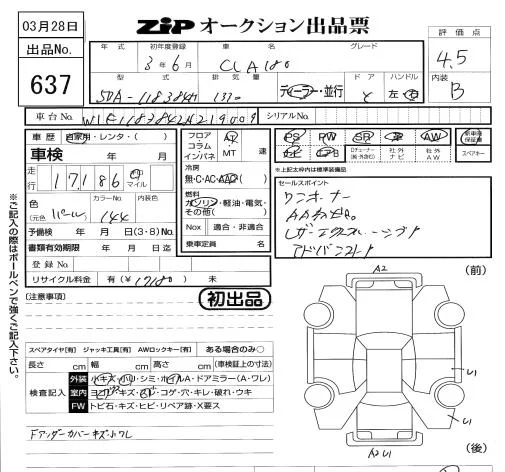 03月28日
ZIP オークション出品票
出品No.
637
年式 初年度登録 車名 グレード
3年6月 CLA180
型式 排気量 ドア ハンドル
5DA-118384M 1330 ディーラー・並行 左・右
評価点
4.5
内装
B
車台No. W1K1183842N219009 シリアルNo.
車歴 自家用・レンタ・( )
車検 年 月
走行 17186 km マイル
色 (元色 パール) カラーNo. 144 内装色
予備検 年 月 日(3・8)No.
書類有効期限 年 月 日迄
登録No.
リサイクル料金 有(¥17180) 未
フロア コラム インパネ AT MT 速
冷房
無・C・AC・AAC( )
燃料
ガソリン・軽油・電気・その他( )
Nox 適合・非適合
乗車定員 名
PS PW SR 革 AW 新車時保証書
ナビ TV Dチューナー(純・社外含む) 社外ナビ 社外AW スペアキー
※上記太枠内は標準装備品
セールスポイント
ワンオーナー
レザーエクスクルーシブP
アドバンストP
※ご記入の際はボールペンで強くご記入下さい。
(注意事項)
初出品
スペアタイヤ[有] ジャッキ工具[有] AWロックキー[有] ある場合のみ○
長さ cm 幅 cm 高さ cm (車検証上の寸法)
検査記入
外装 小キズ・小凹・シミ・ホイルA・ドアミラー(A・ワレ)
室内 ヨゴレ・キズ・スレ・コゲ・穴・キレ・破れ・ウキ
FW トビ石・キズ・ヒビ・リペア跡・X要ス
Fアンダーカバーキズ小ワレ
(前)
A2
U1
U1
A2U1
(後)